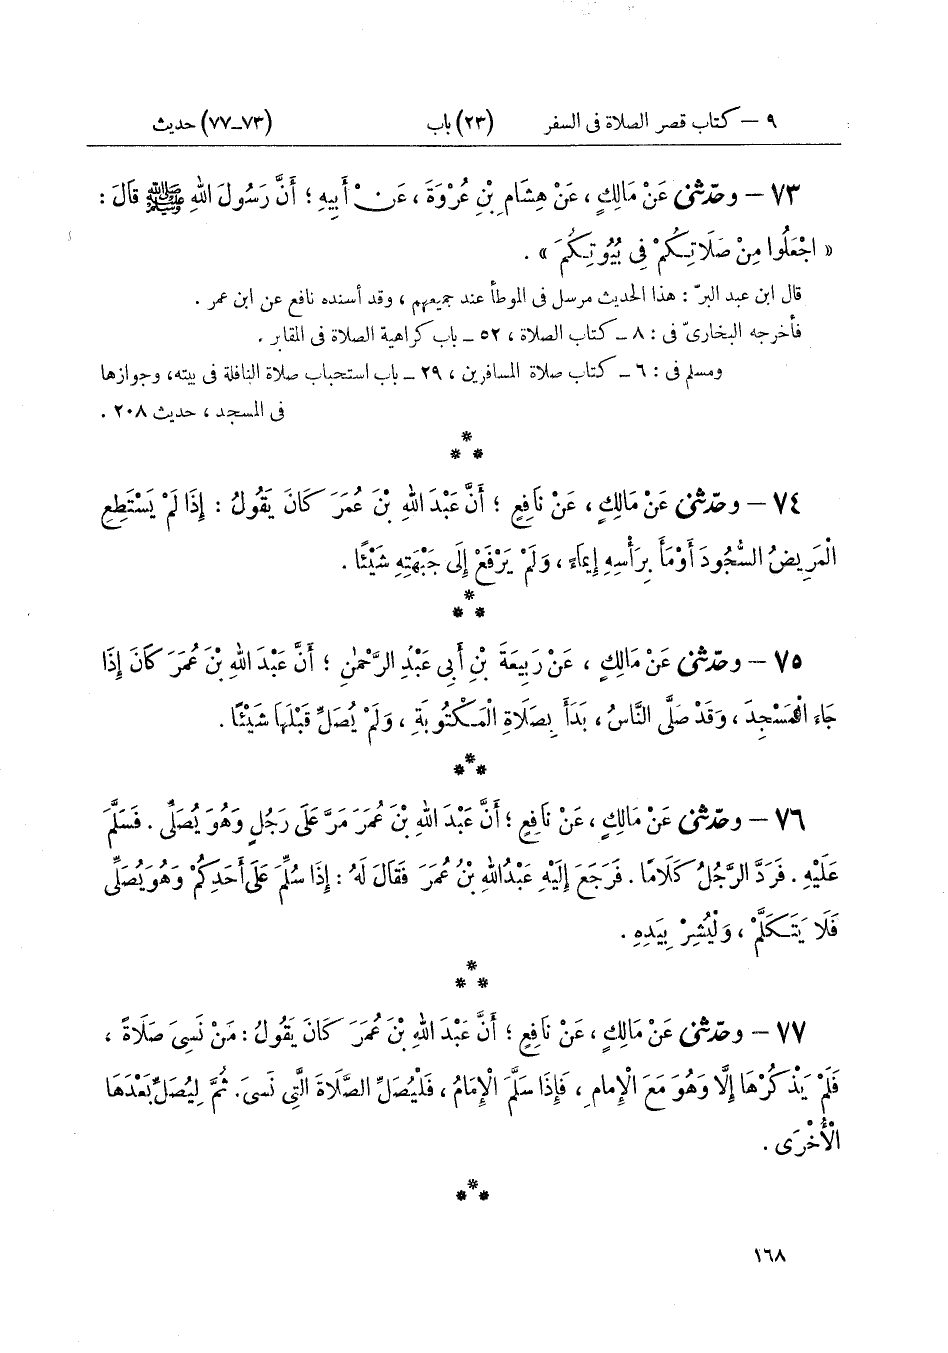 ٩ – كتاب قصر الصلاة فى السفر (٢٣) باب (٧٣–٧٧) حديث
٧٣ – وحدّثنى عَنْ مَالِكٍ ، عَنْ هِشَامِ بْنِ عُرْوَةَ ، عَنْ أَبِيهِ ؛ أَنَّ رَسُولَ اللهِ ﷺ قَالَ :
« اجْعَلُوا مِنْ صَلَاتِكُمْ فِى بُيُوتِكُمْ » .
قال ابن عبد البرّ : هذا الحديث مرسل فى الموطأ عند جميعهم ، وقد أسنده نافع عن ابن عمر .
فأخرجه البخارىّ فى : ٨ – كتاب الصلاة ، ٥٢ – باب كراهية الصلاة فى المقابر .
ومسلم فى : ٦ – كتاب صلاة المسافرين ، ٢٩ – باب استحباب صلاة النافلة فى بيته، وجوازها
فى المسجد ، حديث ٢٠٨ .
*
* *
٧٤ – وحدّثنى عَنْ مَالِكٍ ، عَنْ نَافِعٍ ؛ أَنَّ عَبْدَ اللهِ بْنَ عُمَرَ كَانَ يَقُولُ : إِذَا لَمْ يَسْتَطِعِ
الْمَرِيضُ السُّجُودَ أَوْمَأَ بِرَأْسِهِ إِيمَاءً ، وَلَمْ يَرْفَعْ إِلَى جَبْهَتِهِ شَيْئًا .
*
* *
٧٥ – وحدّثنى عَنْ مَالِكٍ ، عَنْ رَبِيعَةَ بْنِ أَبِى عَبْدِ الرَّحْمٰنِ ؛ أَنَّ عَبْدَ اللهِ بْنَ عُمَرَ كَانَ إِذَا
جَاءَ الْمَسْجِدَ ، وَقَدْ صَلَّى النَّاسُ ، بَدَأَ بِصَلَاةِ الْمَكْتُوبَةِ ، وَلَمْ يُصَلِّ قَبْلَهَا شَيْئًا .
*
* *
٧٦ – وحدّثنى عَنْ مَالِكٍ ، عَنْ نَافِعٍ ؛ أَنَّ عَبْدَ اللهِ بْنَ عُمَرَ مَرَّ عَلَى رَجُلٍ وَهُوَ يُصَلِّى . فَسَلَّمَ
عَلَيْهِ . فَرَدَّ الرَّجُلُ كَلَامًا . فَرَجَعَ إِلَيْهِ عَبْدُ اللهِ بْنُ عُمَرَ فَقَالَ لَهُ : إِذَا سُلِّمَ عَلَى أَحَدِكُمْ وَهُوَ يُصَلِّى
فَلَا يَتَكَلَّمْ ، وَلْيُشِرْ بِيَدِهِ .
*
* *
٧٧ – وحدّثنى عَنْ مَالِكٍ ، عَنْ نَافِعٍ ؛ أَنَّ عَبْدَ اللهِ بْنَ عُمَرَ كَانَ يَقُولُ : مَنْ نَسِىَ صَلَاةً ،
فَلَمْ يَذْكُرْهَا إِلَّا وَهُوَ مَعَ الْإِمَامِ ، فَإِذَا سَلَّمَ الْإِمَامُ ، فَلْيُصَلِّ الصَّلَاةَ الَّتِى نَسِىَ. ثُمَّ لِيُصَلِّ بَعْدَهَا
الْأُخْرَى .
*
* *
١٦٨